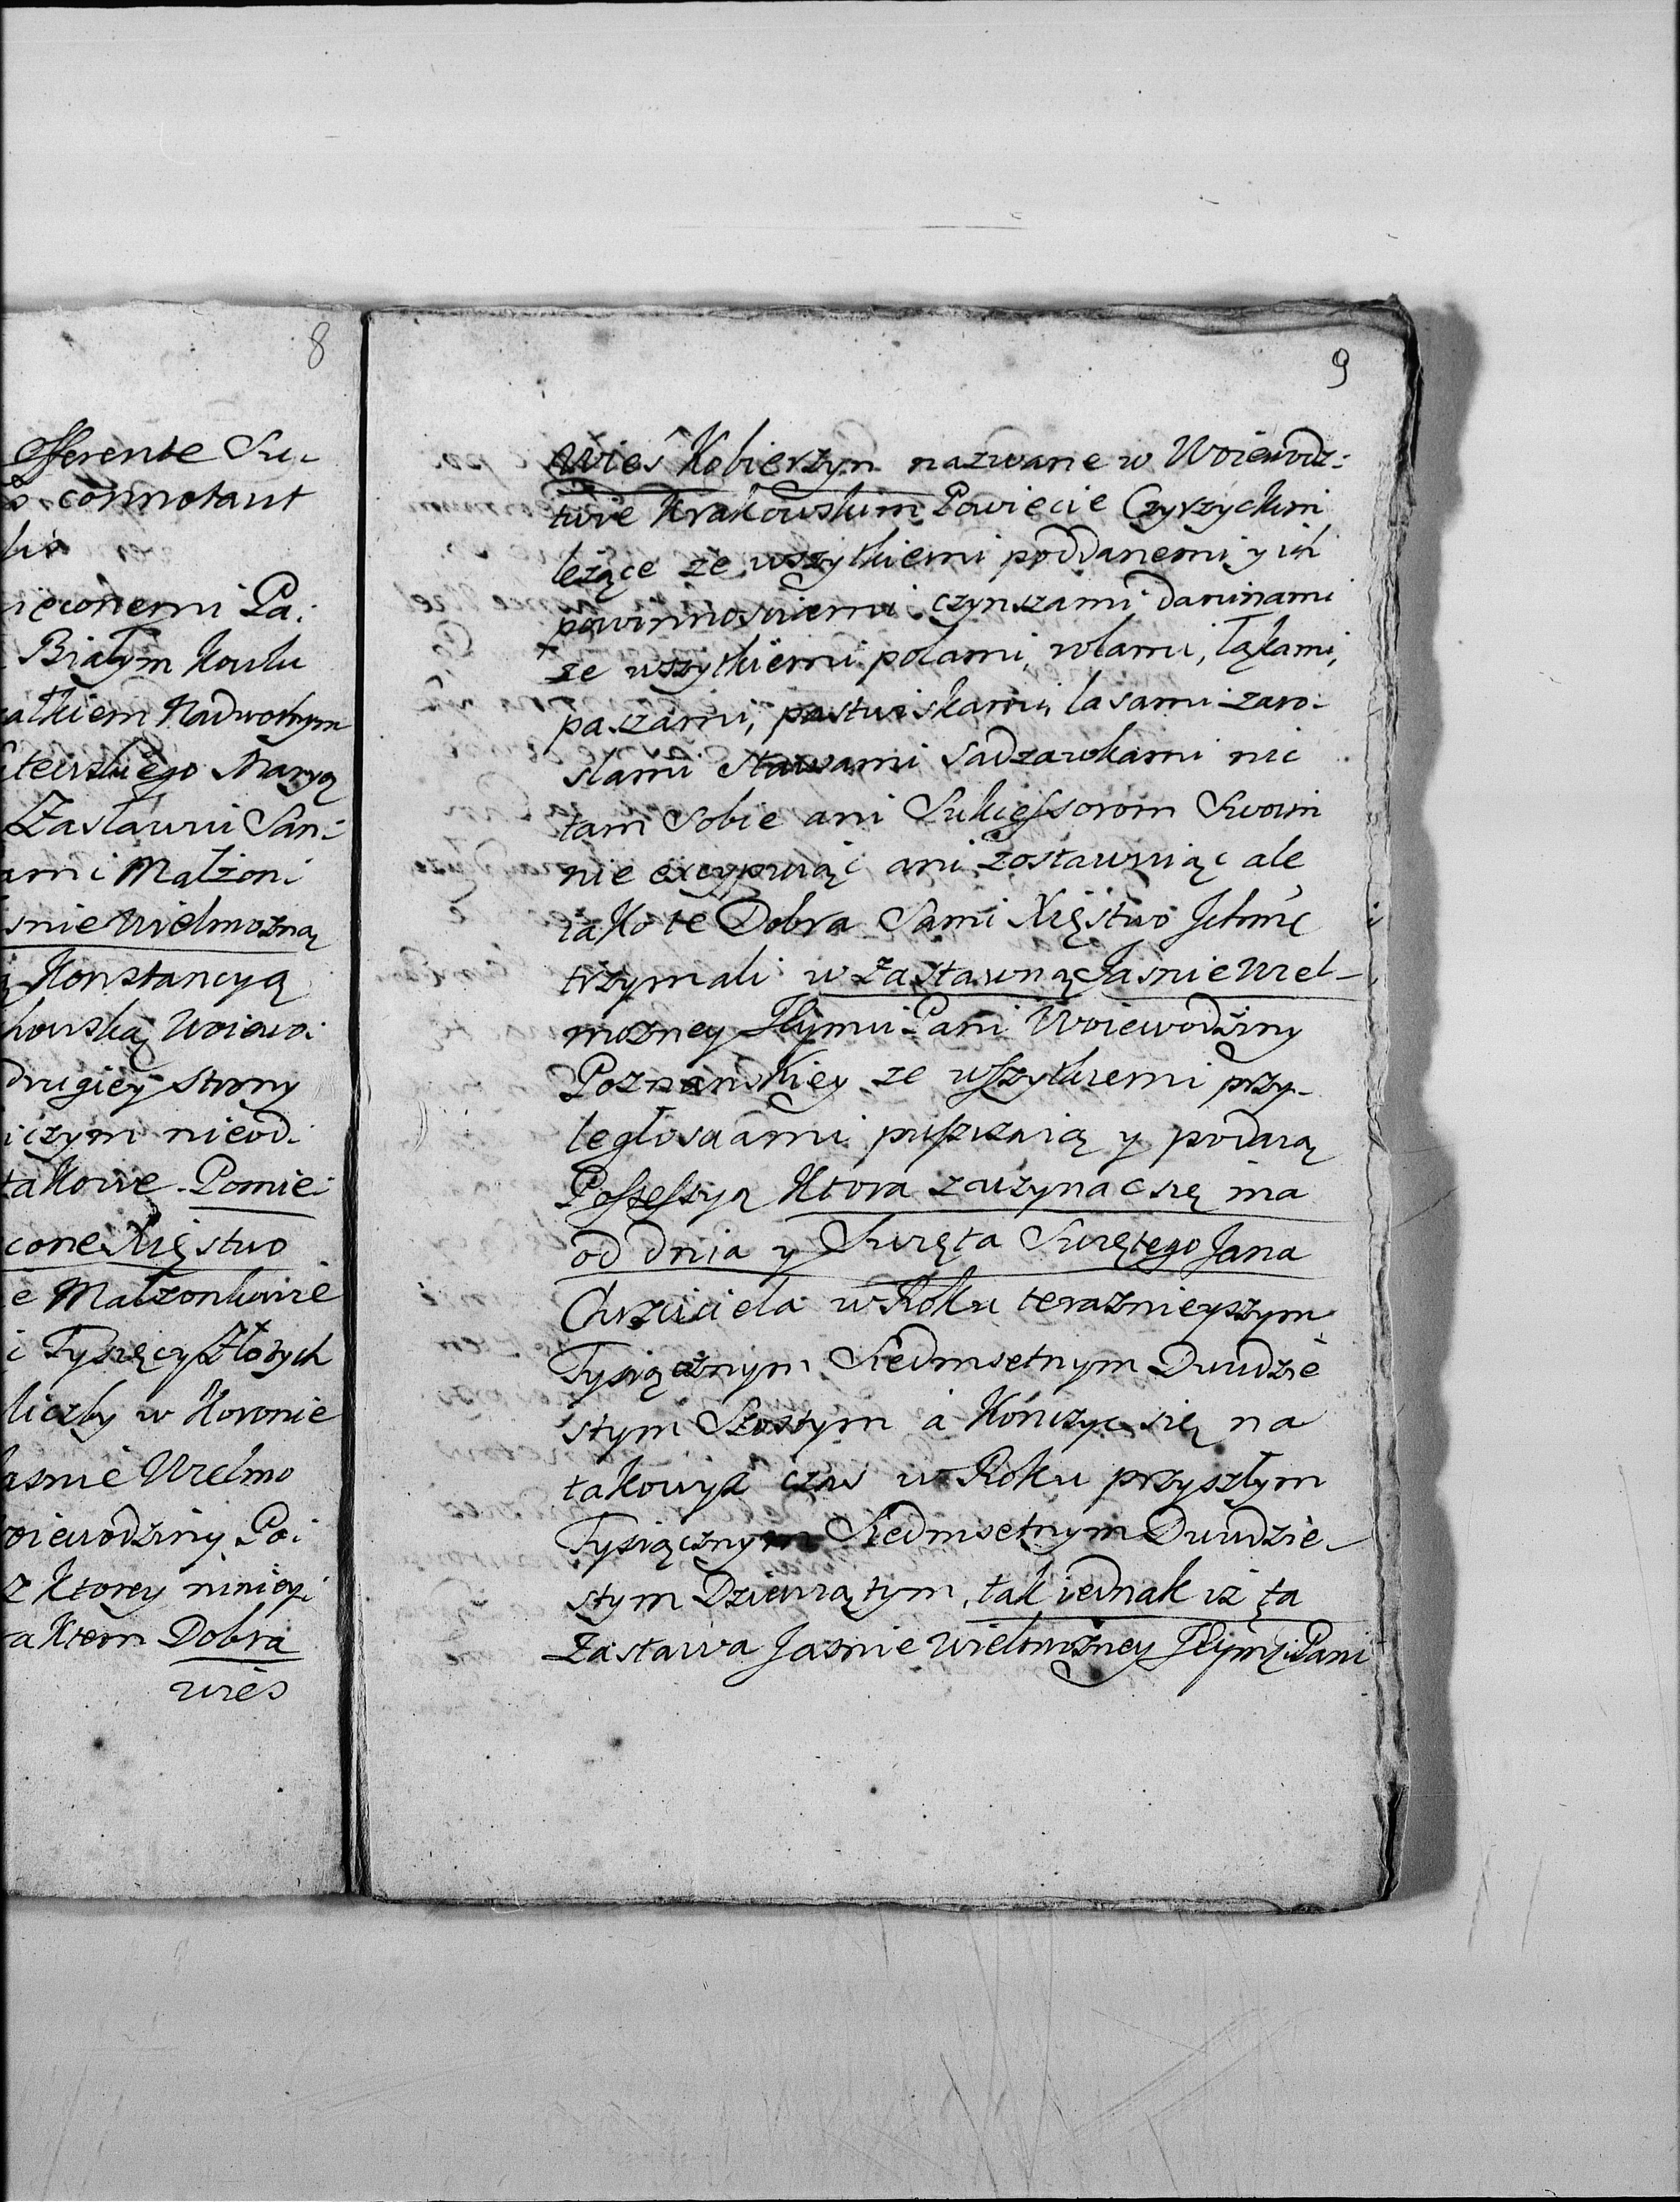 8
efferente Su-
connotant
ięconemi Pa:
Białym Kowlu
ałkiem Nadwornym
itewskiego Maryą
Zastawu San:
ami Małżon:
snie Wielmozną
Konstancyą
kowską Woiewo:
drugiey strony
iczym nieod:
takowe Pomie:
cone Xięstwo
e Małzonkowie
i Tysięcy Złotych
liczby w Koronie
asnie Wielmo
oiewodziny Po:
z ktorey ninieyi
aktem Dobra
wies
9
Wieś Kobierzyn nazwane w Woiewodz:
twie Krakowskim Powiecie Czyrzyckim
leżące ze wszytkiemi poddanemi y ich
powinnosciemi czynszami daninami
ze wszytkiemi polami, rolami, łąkami,
paszami, pastwiskami, lasami zaro-
slami stawami Sadzawkami nic
tam Sobie ani Sukcessorom Swoim
nie excypuiąc ani zostawuiąc ale
iako te Dobra Sami Xięstwo Jchmc
trzymali w Zastawną Jasnie Wiel-
mozney Jeymci Pani Woiewodziny
Poznanskiey ze wszytkiemi przy-
ległosciami puszczaią y podaią
Possessyą ktora zaczynac się ma
od dnia y Swięta Swiętego Jana
Chrzciciela w Roku teraznieyszym
Tysiącznym Siedmsetnym Dwudzie
stym Szostym a Kończyc się na
takowyż czas w Roku przyszłym
Tysiącznym Siedmsetnym Dwudzie-
stym Dziewiątym, tak iednak iż ta
Zastawa Jasnie Wielmożney Jeymci Pani